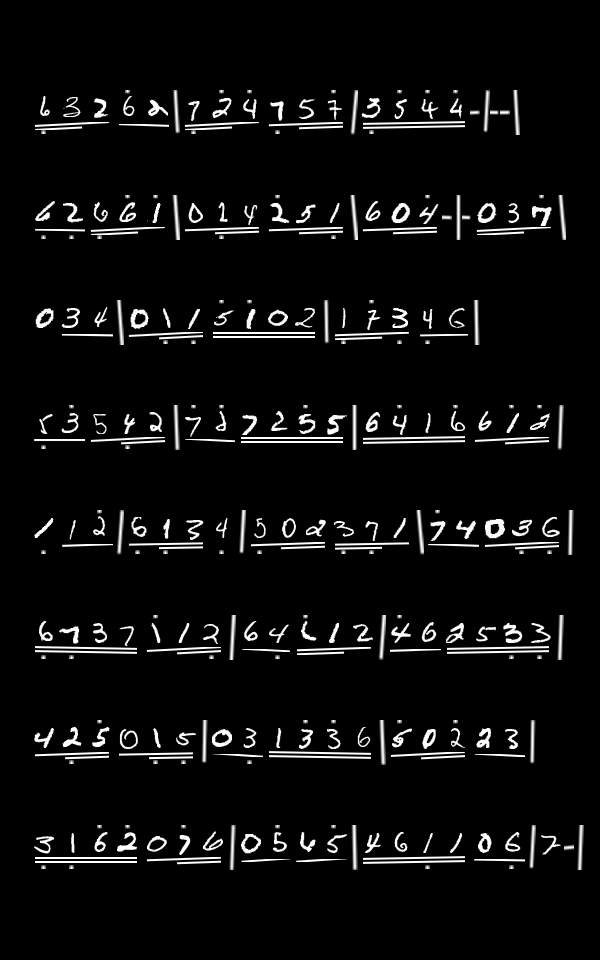 6 3 2 6 2 | 7 2 4 7 5 7 | 3 5 4 4 - | - - |
6 2 6 6 1 | 0 1 4 2 5 1 | 6 0 4 - | - 0 3 7 |
0 3 4 | 0 1 1 5 1 0 2 | 1 7 3 4 6 |
5 3 5 4 2 | 7 2 7 2 5 5 | 6 4 1 6 6 1 2 |
1 1 2 | 6 1 3 4 | 5 0 2 3 7 1 | 7 4 0 3 6 |
6 7 3 7 1 1 2 | 6 4 1 2 | 4 6 2 5 3 3 |
4 2 5 0 1 5 | 0 3 1 3 3 6 | 5 0 2 2 3 |
3 1 6 2 0 7 6 | 0 5 6 5 | 4 6 1 1 0 6 | 7 - |